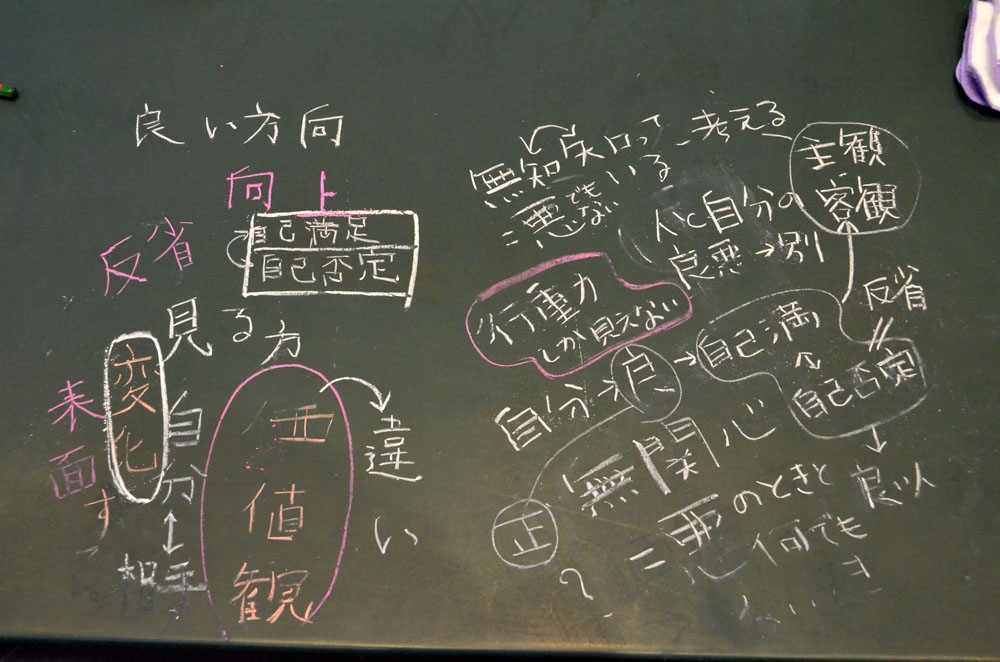 良い方向
向上
自己満足
自己否定
反省
見る方
変化
表面
自分
↕
相手
す
価値観
違い
無知
知って
いる
=悪でも
ない
考える
主観
客観
人と自分の
良悪→別
行動力
しか見えない
自分→良
→自己満
自己否定
反省
無関心
=悪のときと
良い
何でも
正
?